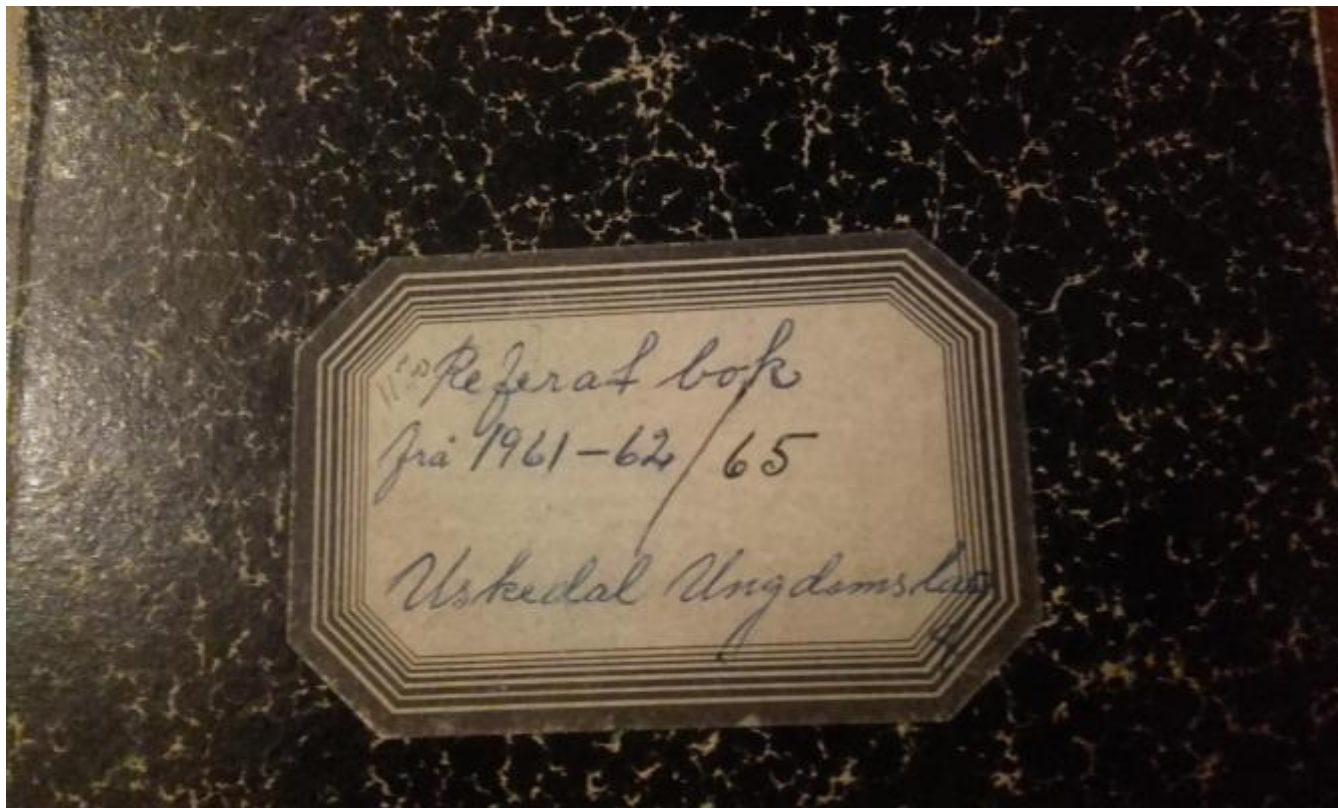 Referat bok
frå 1961-62/65
Uskedal Ungdomslag